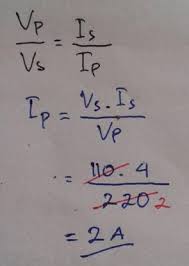 Vp/Vs = Is/Ip
Ip = Vs . Is/Vp
= 110 . 4/220 2
= 2 A